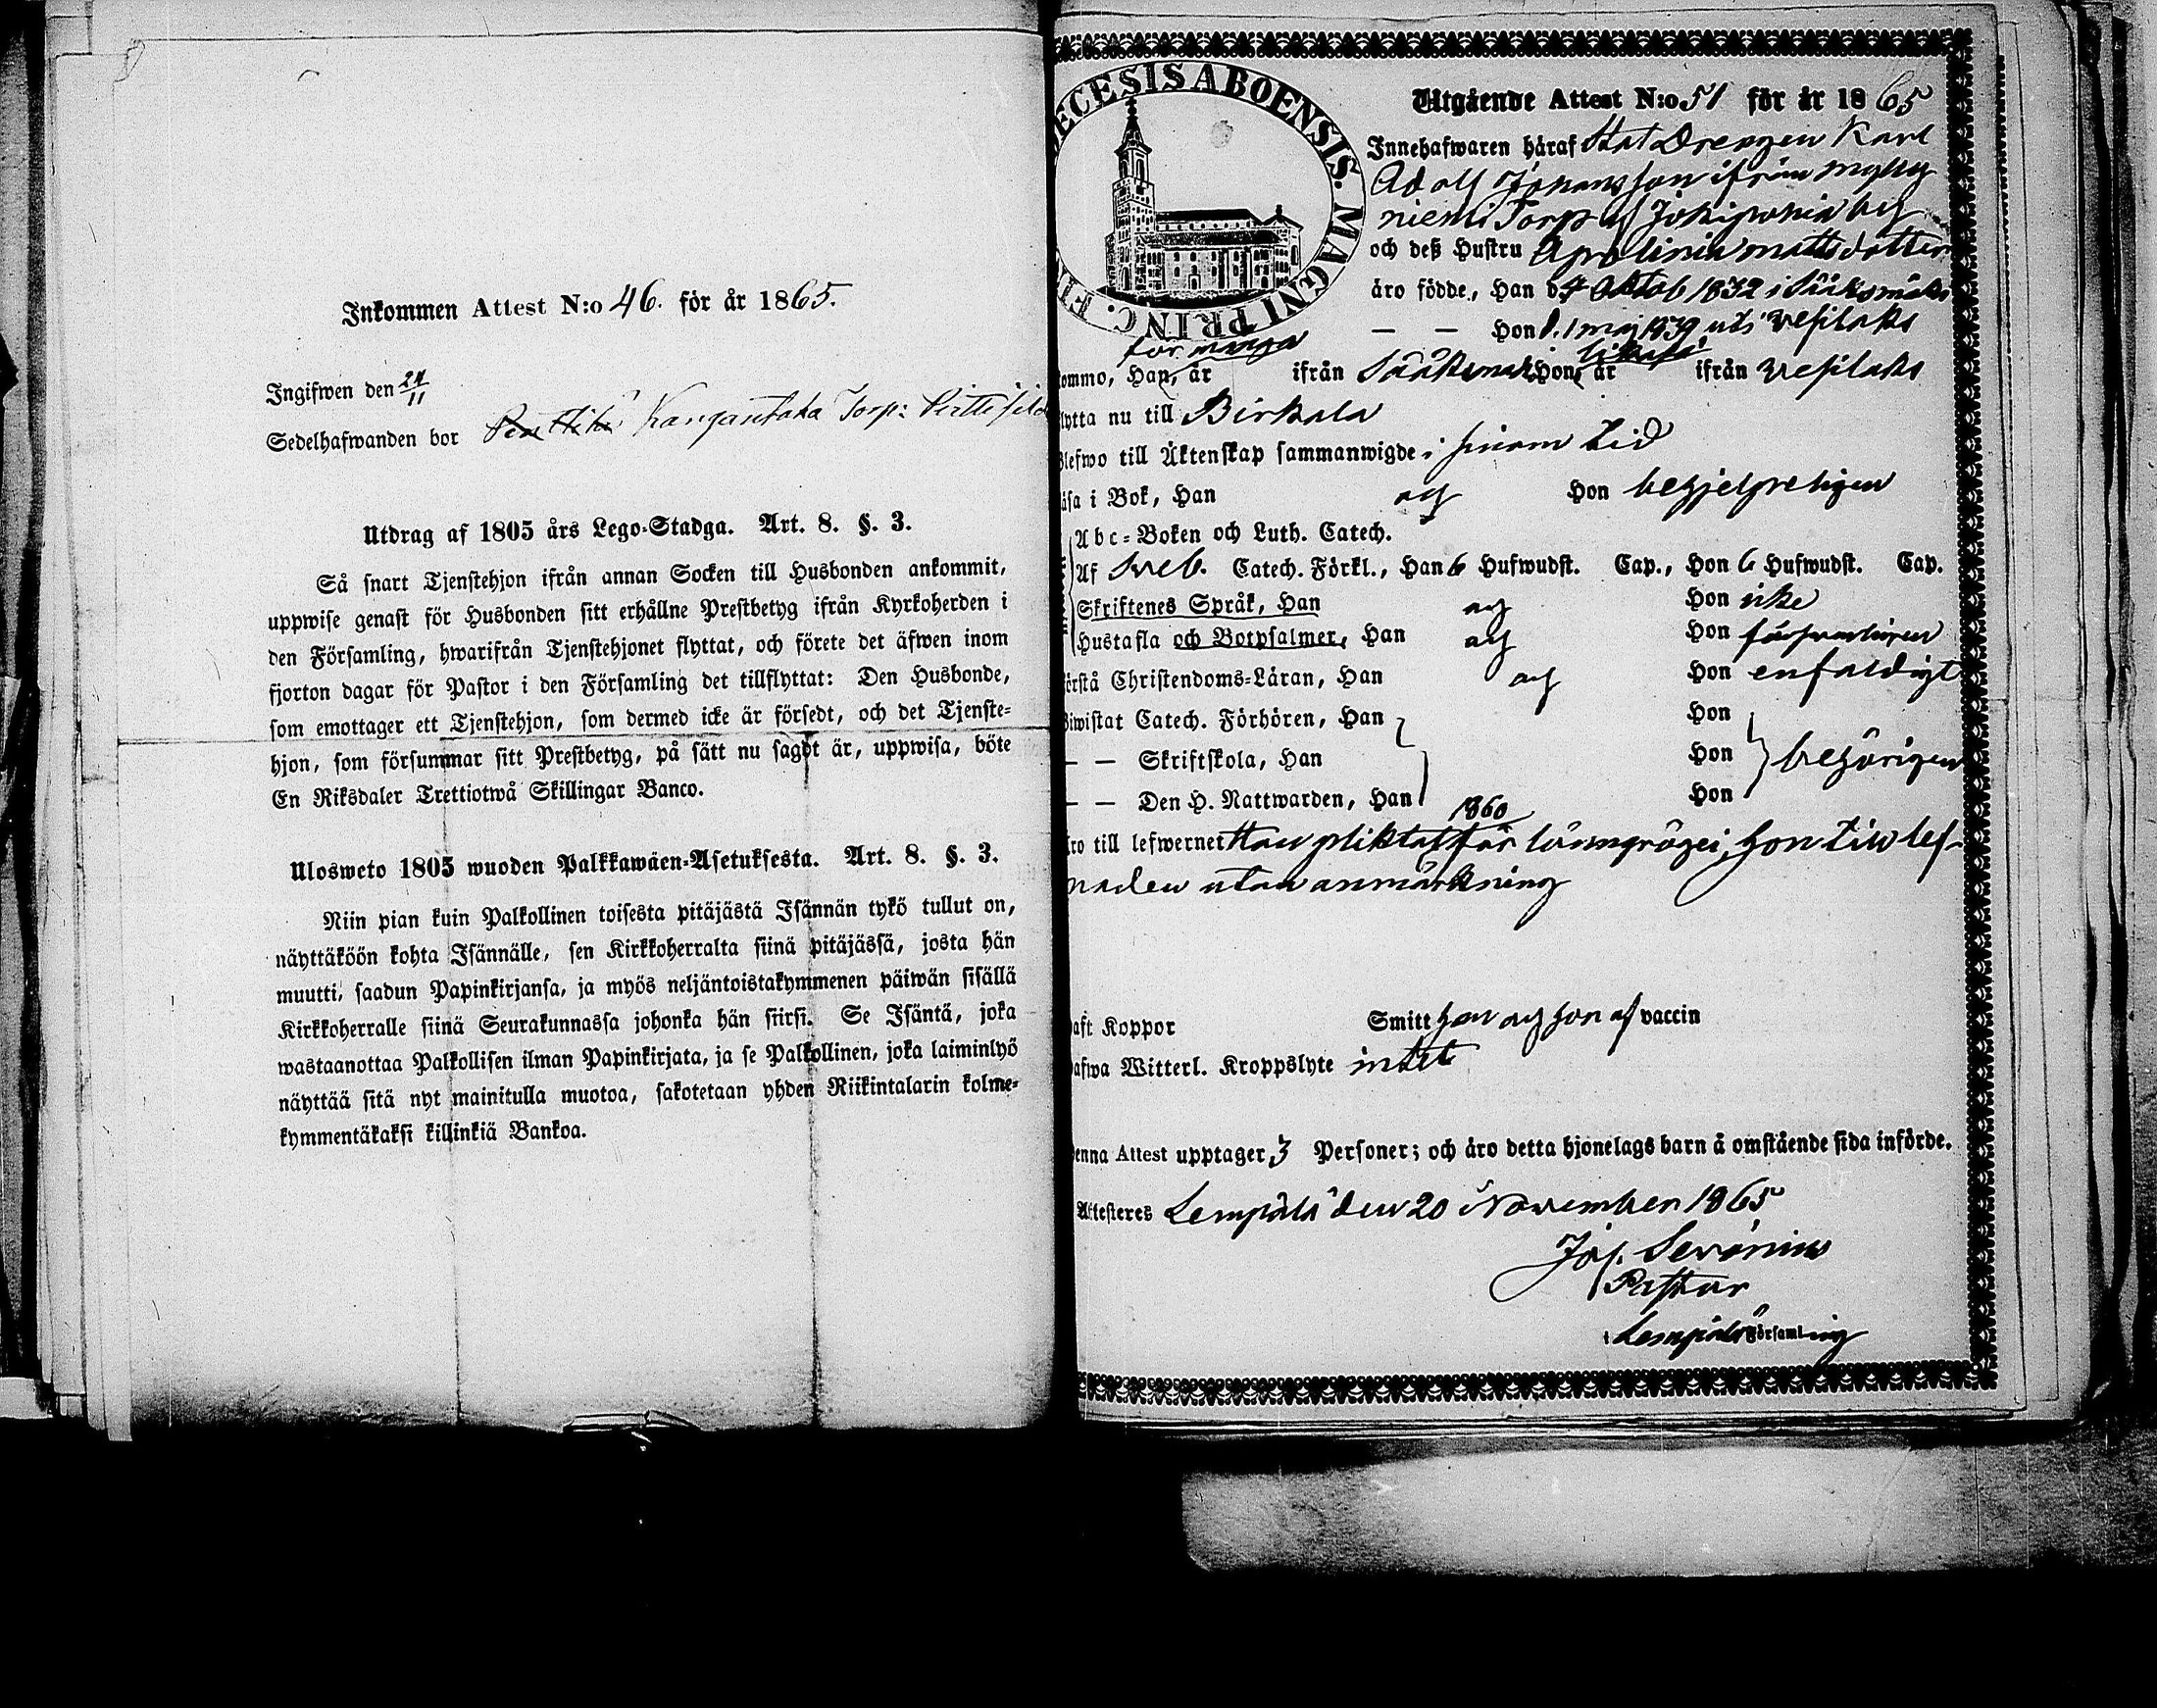 Inkommen Attest N:o 46. för år 1865.
Ingifwen den 24/11
Sedelhafwanden bor Kangantaka Torp:
Utdrag af 1805 års Lego-Stadga. Art. 8. §. 3.
Så snart Tjenstehjon ifrån annan Socken till Husbonden ankommit,
uppwise genast för Husbonden sitt erhållne Prestbetyg ifrån Kyrkoherden i
den Församling, hwarifrån Tjenstehjonet flyttat, och förete det äfwen inom
fjorton dagar för Pastor i den Församling det tillflyttat: Den Husbonde,
som emottager ett Tjenstehjon, som dermed icke är försedt, och det Tjenste-
hjon, som försummar sitt Prestbetyg, på sätt nu sagdt är, uppwisa, böte
En Riksdaler Trettiotwå Skillingar Banco.
Ulosweto 1805 wuoden Palkkawäen-Asetuksesta. Art. 8. §. 3.
Niin pian kuin Palkollinen toisesta pitäjästä Isännän tykö tullut on,
näyttäköön kohta Isännälle, sen Kirkkoherralta siinä pitäjässä, josta hän
muutti, saadun Papinkirjansa, ja myös neljäntoistakymmenen päiwän sisällä
Kirkkoherralle siinä Seurakunnassa johonka hän siirsi. Se Isäntä, joka
wastaanottaa Palkollisen ilman Papinkirjata, ja se Palkollinen, joka laiminlyö
näyttää sitä nyt mainitulla muotoa, sakotetaan yhden Riikintalarin kolme-
kymmentäkaksi killinkiä Bankoa.
ECESIS ABOENSIS. MAGNI PRINC. FIN
Utgående Attest N:o 51 för år 1865
Innehafwaren häraf Stat Drengen Karl
Adolf Johansson ifrån mylly
niemi Torp af Jokipohia by
och deß Hustru Apolinia mattsdotter
äro födde, Han d. 4 Oktob 1832 i Sääksmäki
— — Hon d. 1 maj 1839 uti Vesilaks
för många
ommo, Han, år ifrån Sääksmäki Hon, år ifrån Vesilaks
lytta nu till Birkala
lefwo till Äktenskap sammanwigde i sinom tid
äsa i Bok, Han och Hon behjelpeligen
Abc-Boken och Luth. Catech.
Af Sveb. Catech. Förkl., Han 6 Hufwudst. Cap., Hon 6 Hufwudst. Cap.
Skriftenes Språk, Han och Hon icke
Hustafla och Botpsalmer, Han och Hon försvarligen
örstå Christendoms-Läran, Han och Hon enfaldigt
iwistat Catech. Förhören, Han Hon
— — Skriftskola, Han Hon behörigen
— — Den H. Nattwarden, Han Hon
1860
ro till lefwernet Han pliktat för lönngrögeri, hon till lef-
naden utan anmärkning
aft Koppor Smitt han och hon af vaccin
afwa Witterl. Kroppslyte intet
enna Attest upptager 3 Personer; och äro detta hjonelags barn å omstående sida införde.
Attesteres Lempälä den 20 November 1865
Jos. Serönius
Pastor
i Lempälä Församling